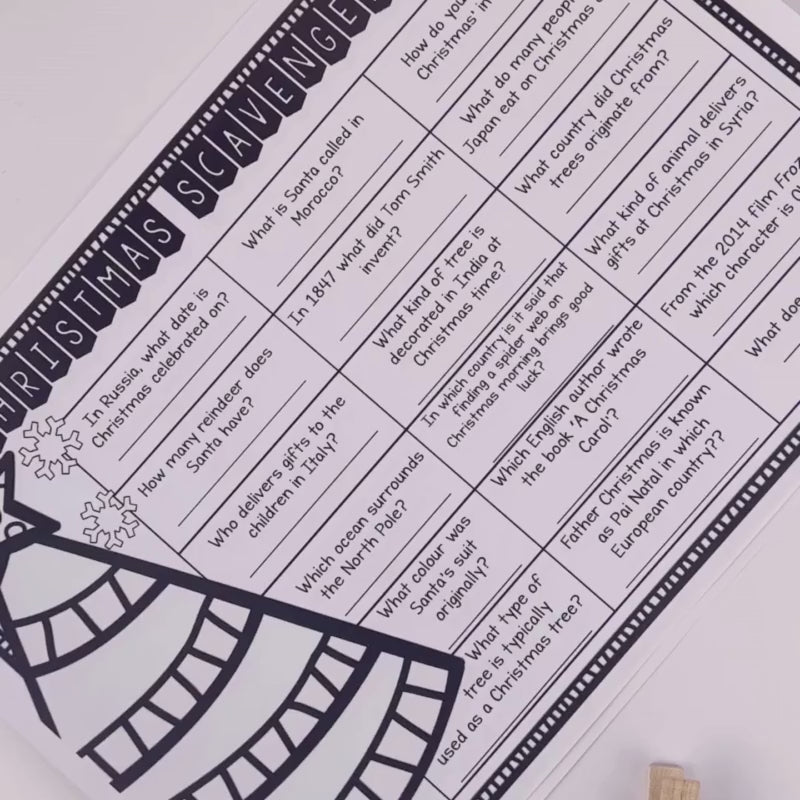 CHRISTMAS SCAVENGE
In Russia, what date is
Christmas celebrated on?
What is Santa called in
Morocco?
How do you
Christmas' in
How many reindeer does
Santa have?
In 1847 what did Tom Smith
invent?
What do many people
Japan eat on Christmas
Who delivers gifts to the
children in Italy?
What kind of tree is
decorated in India at
Christmas time?
What country did Christmas
trees originate from?
Which ocean surrounds
the North Pole?
In which country is it said that
finding a spider web on
Christmas morning brings good
luck?
What kind of animal delivers
gifts at Christmas in Syria?
What colour was
Santa's suit
originally?
Which English author wrote
the book 'A Christmas
Carol'?
From the 2014 film
which character is
What type of
tree is typically
used as a Christmas tree?
Father Christmas is known
as Pai Natal in which
European country??
What does